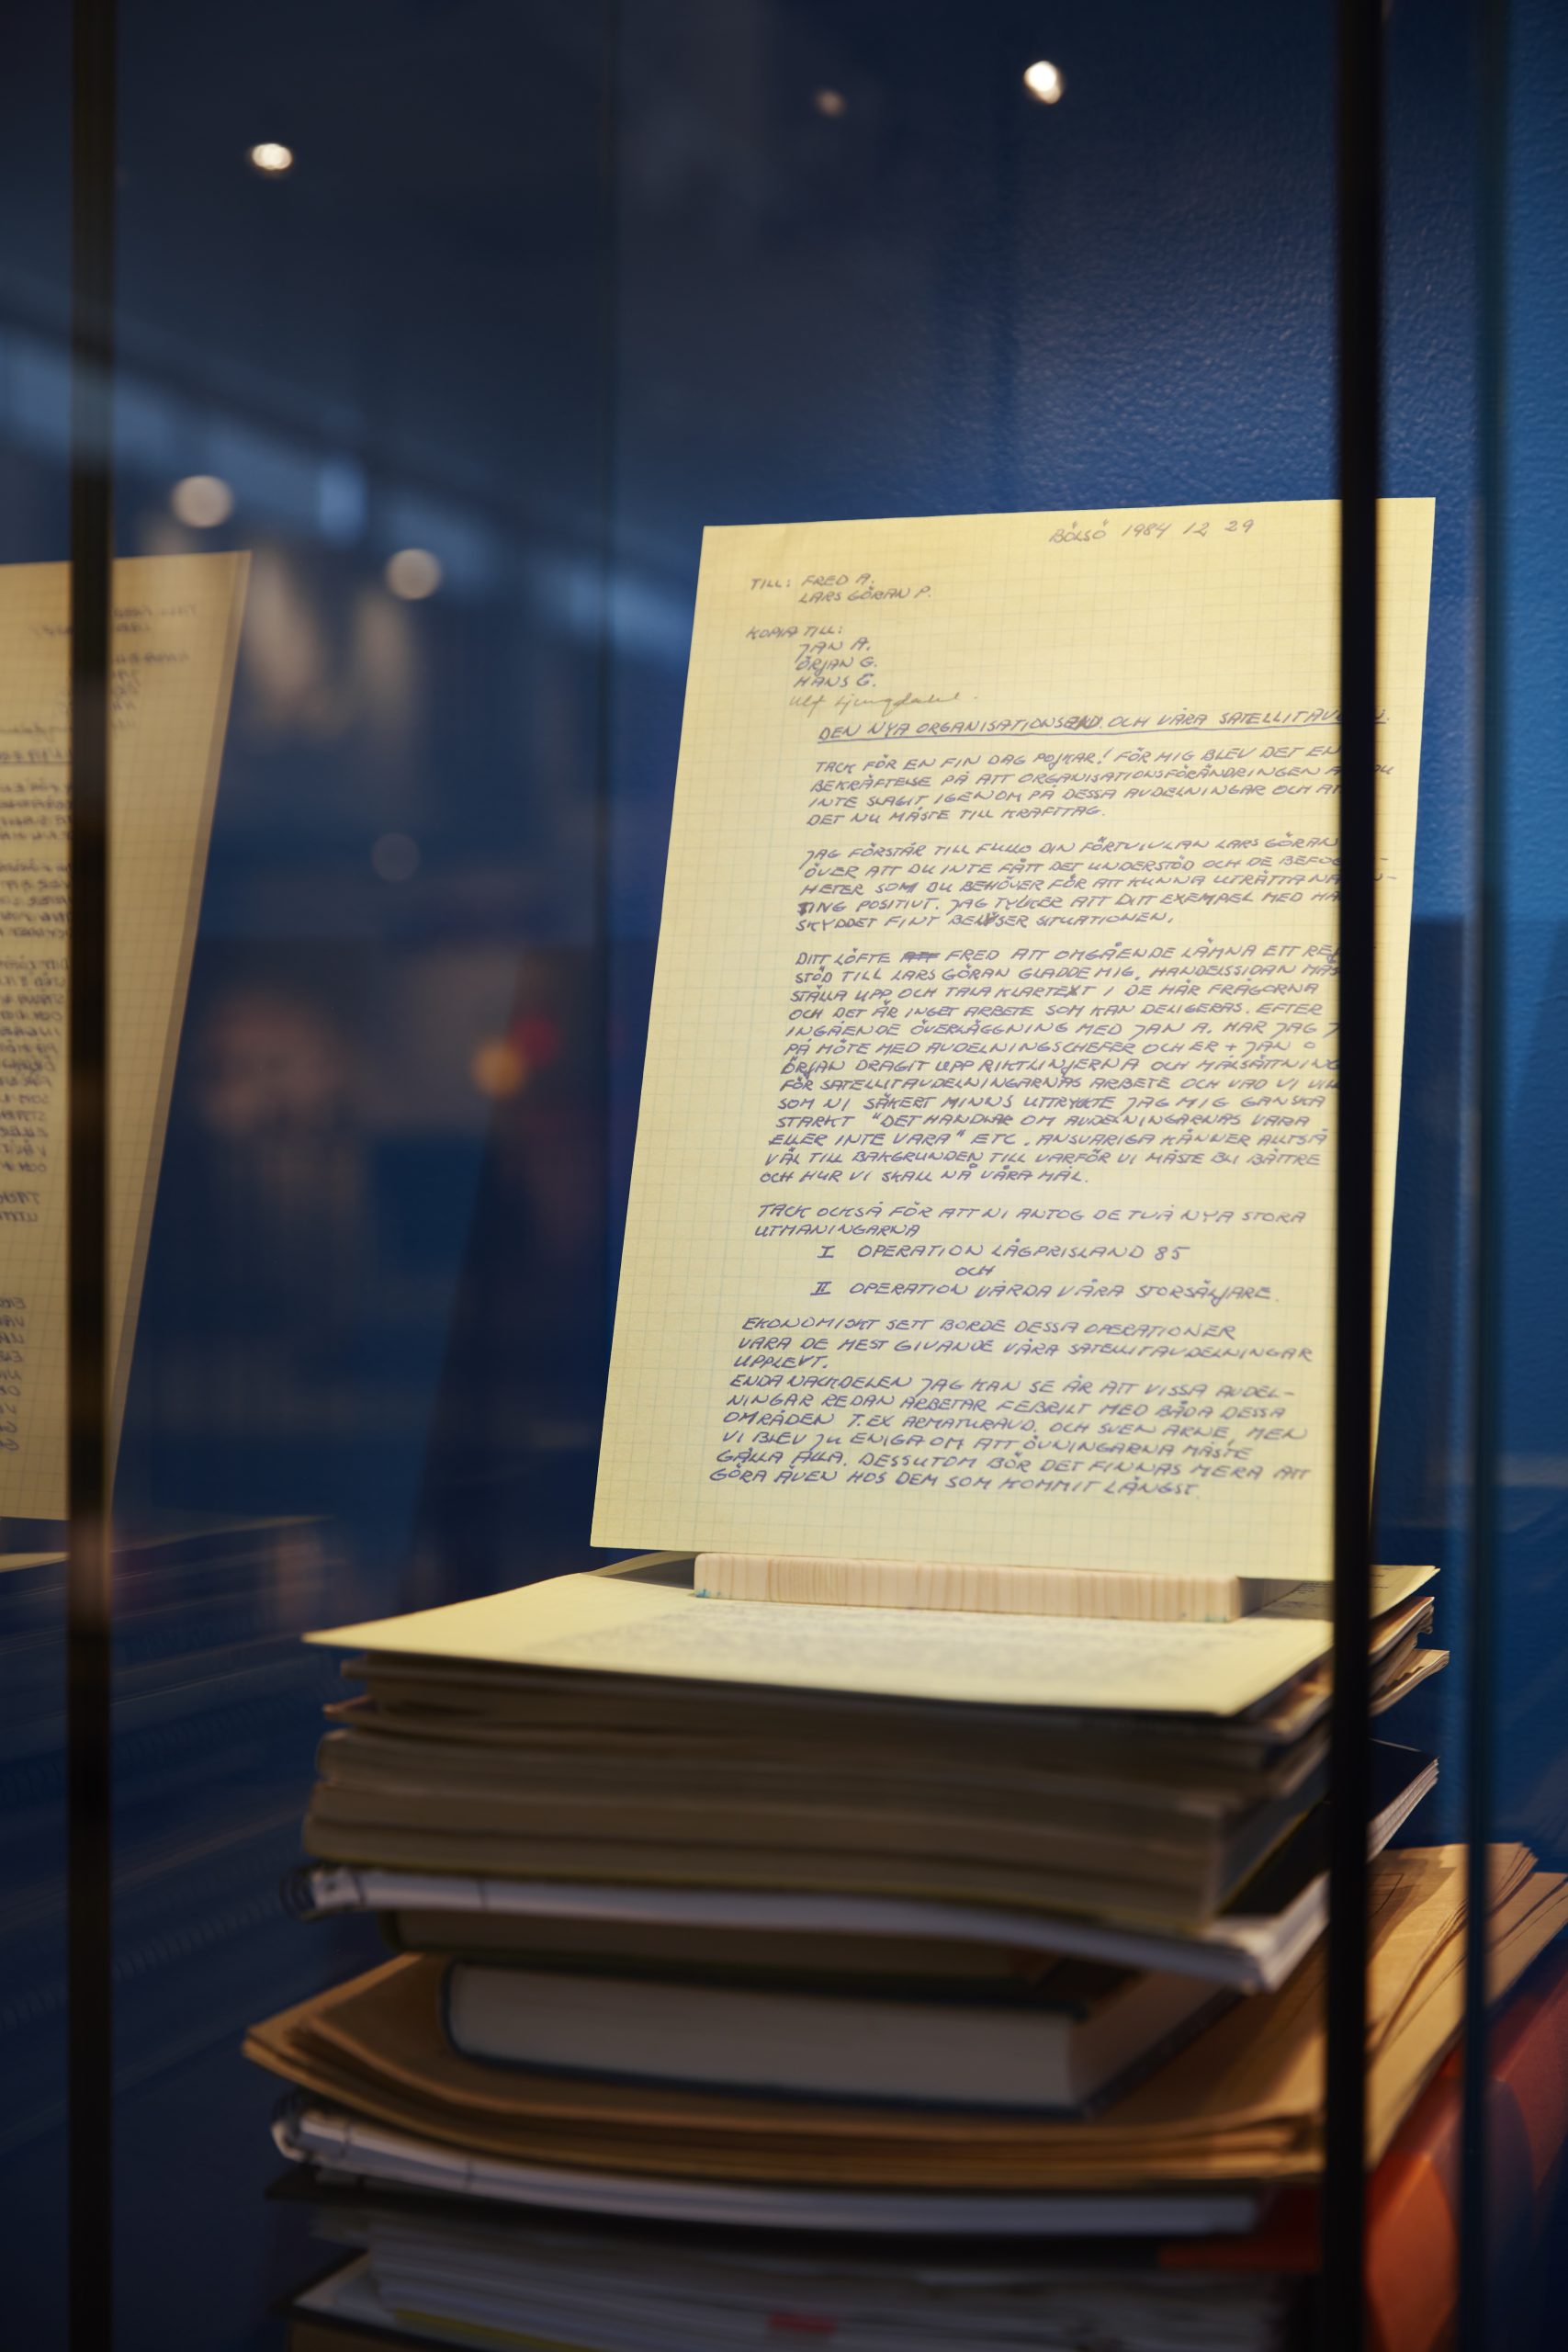 BÖLSÖ 1984 12 29
TILL: FRED A.
LARS GÖRAN P.
KOPIA TILL:
JAN A.
ÖRJAN G.
HANS G.
Ulf Ljungdahl.
DEN NYA ORGANISATIONS OCH VÅRA
TACK FÖR EN FIN DAG POJKAR! FÖR MIG BLEV DET EN
BEKRÄFTELSE PÅ ATT ORGANISATIONSFÖRÄNDRINGEN
INTE SLAGIT IGENOM PÅ DESSA AVDELNINGAR OCH
DET NU MÅSTE TILL KRAFTTAG.
JAG FÖRSTÅR TILL FULLO DIN FÖRTVIVLAN LARS GÖRAN
ÖVER ATT DU INTE FÅTT DET UNDERSTÖD OCH DE
HETER SOM DU BEHÖVER FÖR ATT KUNNA UTRÄTTA
TING POSITIVT. JAG TYCKER ATT DITT EXEMPEL MED
SKYDDET FINT BELYSER SITUATIONEN.
DITT LÖFTE FRED ATT OMGÅENDE LÄMNA ETT
STÖD TILL LARS GÖRAN GLADDE MIG. HANDELSSIDAN
STÄLLA UPP OCH TALA KLARTEXT I DE HÄR FRÅGORNA
OCH DET ÄR INGET ARBETE SOM KAN DELIGERAS. EFTER
INGÅENDE ÖVERLÄGGNING MED JAN A. HAR JAG
PÅ MÖTE MED AVDELNINGSCHEFER OCH ER + JAN O
ÖRJAN DRAGIT UPP RIKTLINJERNA OCH
FÖR SATELLITAVDELNINGARNAS ARBETE OCH VAD VI
SOM NI SÄKERT MINNS UTTRYCKTE JAG MIG GANSKA
STARKT "DET HANDLAR OM AVDELNINGARNAS VARA
ELLER INTE VARA" ETC. ANSVARIGA KÄNNER ALLTSÅ
VÄL TILL BAKGRUNDEN TILL VARFÖR VI MÅSTE BLI BÄTTRE
OCH HUR VI SKALL NÅ VÅRA MÅL.
TACK OCKSÅ FÖR ATT NI ANTOG DE TVÅ NYA STORA
UTMANINGARNA
I OPERATION LÅGPRISLAND 85
OCH
II OPERATION VÅRDA VÅRA STORSÄLJARE.
EKONOMISKT SETT BORDE DESSA OPERATIONER
VARA DE MEST GIVANDE VÅRA SATELLITAVDELNINGAR
UPPLEVT.
ENDA NACKDELEN JAG KAN SE ÄR ATT VISSA AVDEL-
NINGAR REDAN ARBETAR FEBRILT MED BÅDA DESSA
OMRÅDEN T.EX ARMATURAVD. OCH SVEN ARNE, MEN
VI BLEV JU ENIGA OM ATT ÖVNINGARNA MÅSTE
GÄLLA ALLA. DESSUTOM BÖR DET FINNAS MERA ATT
GÖRA ÄVEN HOS DEM SOM KOMMIT LÄNGST.